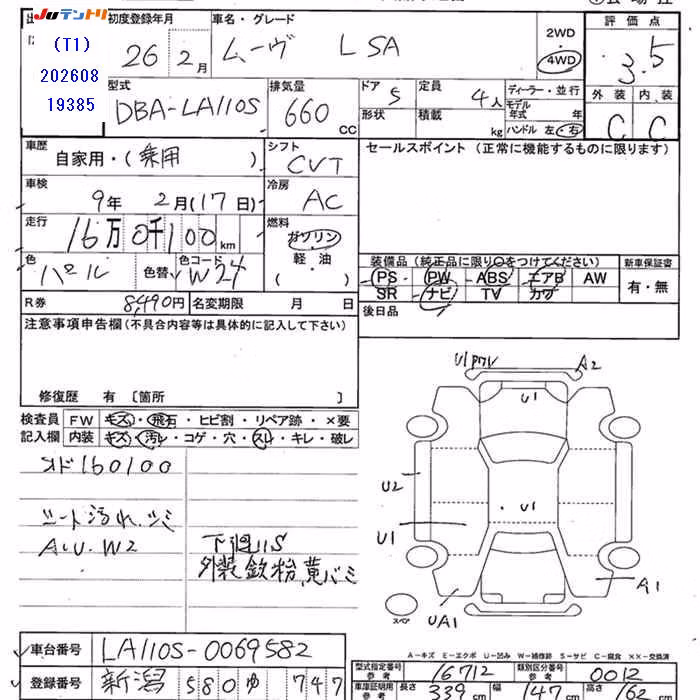 Juテントリ
(T1)
202608
19385
初度登録年月
26 2月
車名・グレード
ムーヴ L SA
2WD
4WD
評価点
3.5
外装 内装
C C
型式
DBA-LA110S
排気量
660
CC
ドア 5
形状
定員 4人
積載 kg
ディーラー・並行
モデル
年式 年
ハンドル 左・右
車歴
自家用・(乗用)
シフト
CVT
セールスポイント(正常に機能するものに限ります)
車検
9年 2月(17日)
冷房
AC
走行
16万0千100km
燃料
ガソリン
軽・油
( )
色
パール
色替
色コード
W24
装備品(純正品に限り○をつけてください)
新車保証書
PS PW ABS エアB AW
SR ナビ TV カワ
有・無
R券
8,490円
名変期限 月 日
後日品
注意事項申告欄(不具合内容等は具体的に記入して下さい)
修復歴 有 [箇所 ]
検査員
記入欄
FW キズ・飛石・ヒビ割・リペア跡・×要
内装 キズ・汚れ・コゲ・穴・スレ・キレ・破レ
オド160100
シート汚れ.シミ
A.U.W2
下廻りS
外装鉄粉,黄バミ
U1
A2
U1
U2
U1
U1
UA1
A1
スペア
A-キズ E-エクボ U-凹み W-補修跡 S-サビ C-腐食 ××-交換済
車台番号
LA110S-0069582
登録番号
新潟 580 ゆ 747
型式指定番号
参考
16712
類別区分番号
参考
0012
車庫証明用
参考
長さ 339cm 幅 147cm 高さ 162cm